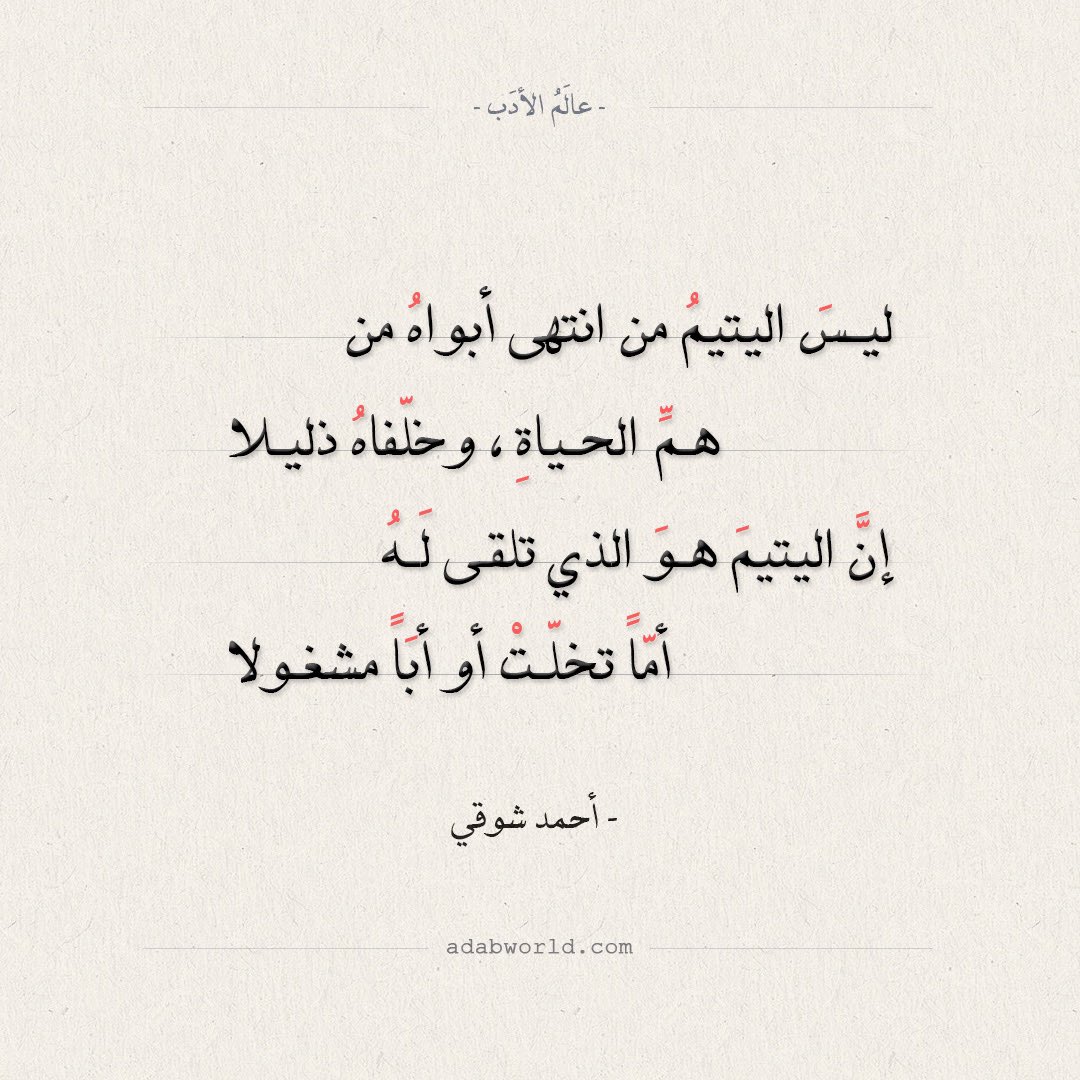 - عالَمُ الأدَب -
ليـسَ اليتيمُ من انتهى أبواهُ من
هـمِّ الحـياةِ ، وخلّفاهُ ذليـلا
إنَّ اليتيمَ هـوَ الذي تلقـى لَـهُ
أمّاً تخلّـتْ أو أبَاً مشغـولا
- أحمد شوقي
adabworld.com